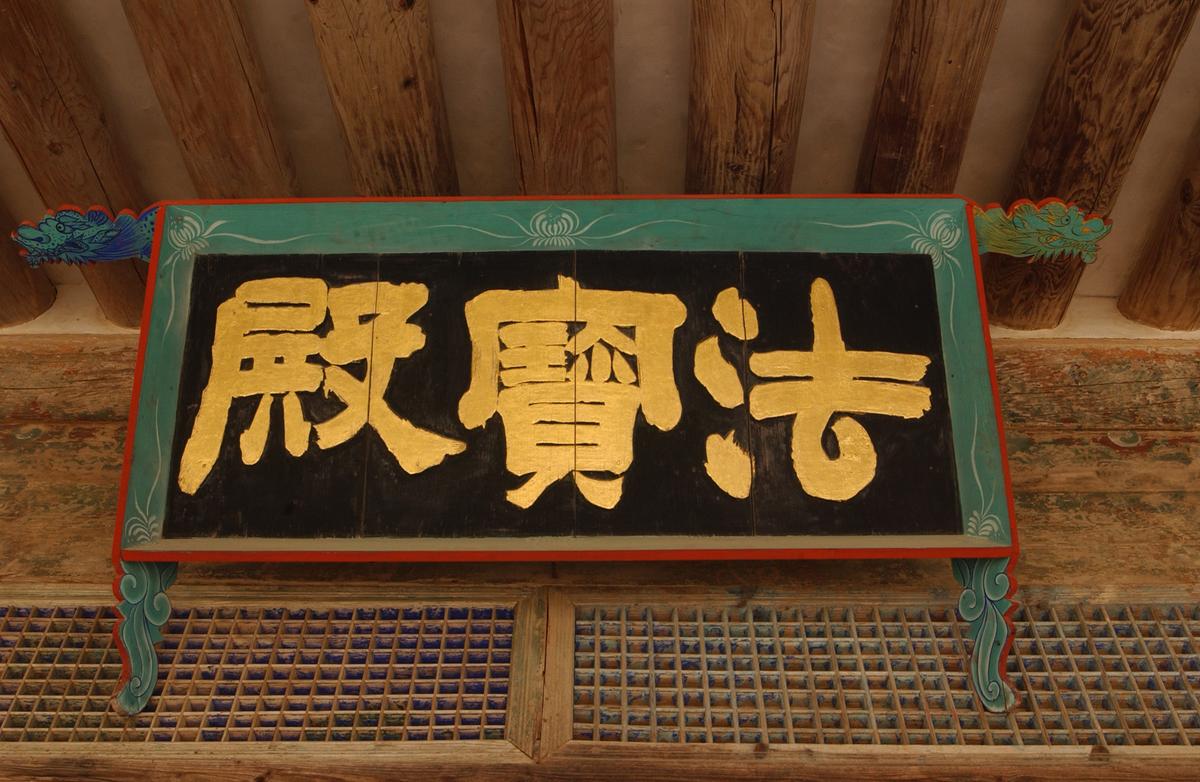 法寶殿